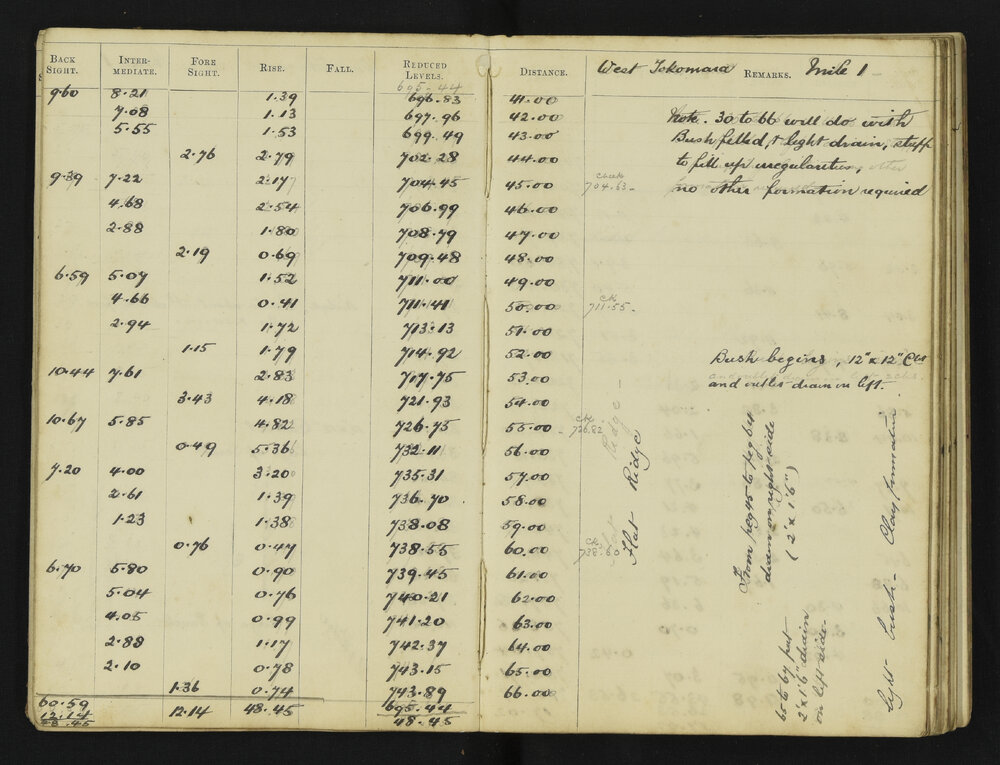 BACK SIGHT. INTER-MEDIATE. FORE SIGHT. RISE. FALL. REDUCED LEVELS. DISTANCE. West Tokomaru REMARKS. Mile 1
695.44
9.60 8.21 1.39 696.83 41.00
7.08 1.13 697.96 42.00 Note. 30 to 66 will do with
5.55 1.53 699.49 43.00 Bush felled, & light drain, stuff
2.76 2.79 702.28 44.00 to fill up irregularities,
9.39 7.22 2.17 704.45 45.00 check 704.63 no other formation required
4.68 2.54 706.99 46.00
2.88 1.80 708.79 47.00
2.19 0.69 709.48 48.00
6.59 5.07 1.52 711.00 49.00
4.66 0.41 711.41 50.00 ck 711.55
2.94 1.72 713.13 51.00
1.15 1.79 714.92 52.00 Bush begins, 12" x 12"
10.44 7.61 2.83 717.75 53.00 and outlet drain on left
3.43 4.18 721.93 54.00
10.67 5.85 4.82 726.75 55.00 ck 726.82
0.49 5.36 732.11 56.00
7.20 4.00 3.20 735.31 57.00
2.61 1.39 736.70 58.00
1.23 1.38 738.08 59.00
0.76 0.47 738.55 60.00 ck 738.60
6.70 5.80 0.90 739.45 61.00
5.04 0.76 740.21 62.00
4.05 0.99 741.20 63.00
2.88 1.17 742.37 64.00
2.10 0.78 743.15 65.00
1.36 0.74 743.89 66.00
60.59 12.14 48.45 695.44
12.14 48.45
48.45
Flat Ridge
From peg 45 to peg 64
drain on right side
(2' x 1'6")
65 to 67 put
2' x 1'6" drain
on left side
light bush - Clay formation